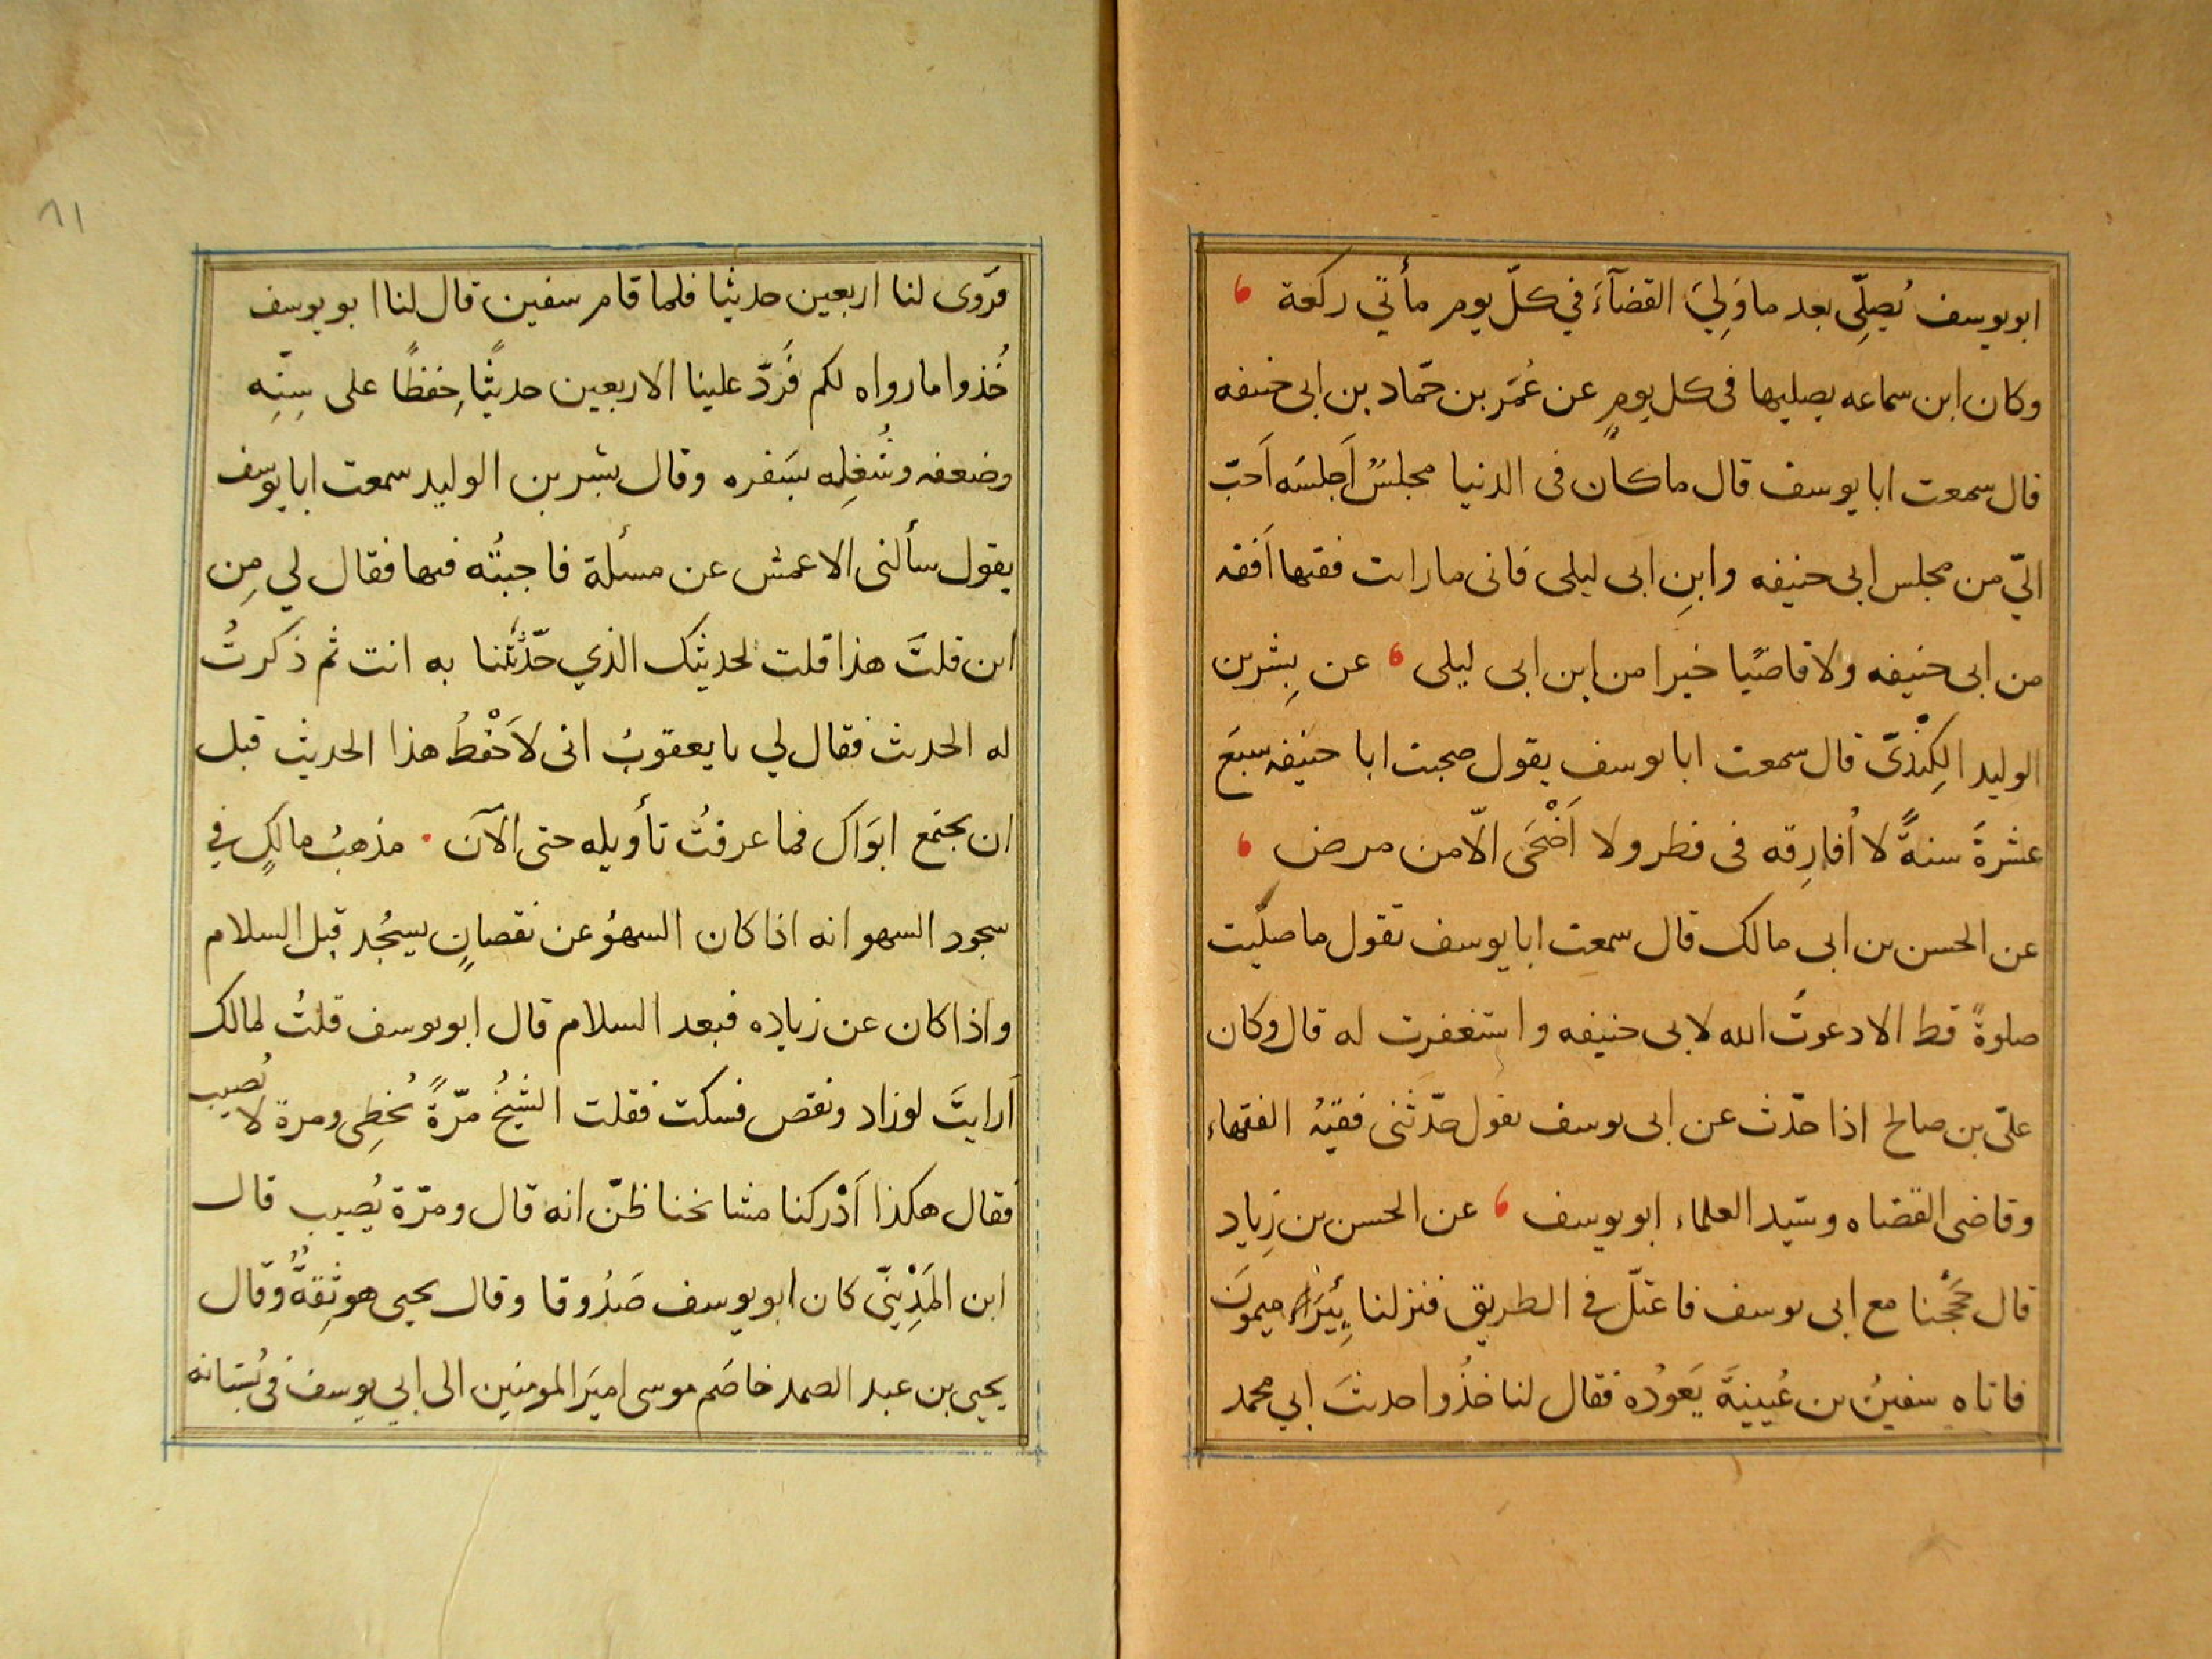 ابويوسف يُصلِّى بعد ما وَلِيَ القضآءَ في كلّ يوم مأتي ركعة
وكان ابن سماعه يصليها فى كل يومٍ عن عُمَر بن حمّاد بن ابى حنيفه
قال سمعت ابا يوسف قال ما كان فى الدنيا مجلسٌ اَجلسَه اَحبّ
اليّ من مجلس ابى حنيفه وابنِ ابى ليلى فانى ما رايت فقيها اَفقه
من ابى حنيفه ولا قاضيًا خيرا من ابن ابى ليلى عن بِشر بن
الوليد الكِنْدىّ قال سمعت ابا يوسف يقول صحبت ابا حنيفه سبعَ
عشرةَ سنةً لا اُفارِقه فى فطر ولا اَضْحَى الّا من مرض
عن الحسن بن ابى مالك قال سمعت ابا يوسف يقول ما صلّيت
صلوةً قط الا دعوتُ الله لابى حنيفه واستغفرت له قال وكان
علىّ بن صالح اذا حدّث عن ابى يوسف يقول حدّثنى فقيهُ الفقهاء
وقاضى القضاه وسيّد العلماء ابو يوسف عن الحسن بن زِياد
قال حَجَجْنا مع ابى يوسف فاعتلّ في الطريق فنزلنا بِئرَ ميمونَ
فاتاه سفينُ بن عُيينيةَ يَعودُه فقال لنا خذُوا حديثَ ابي محمد
٨١
فرَوى لنا اربعين حديثا فلما قام سفين قال لنا ابو يوسف
خُذوا ما رواه لكم فَردّ علينا الاربعين حديثًا حِفظًا على سِنِّه
وضعفه وشُغلِه بسَفره وقال بشر بن الوليد سمعت ابا يوسف
يقول سألنى الاعمش عن مسئلة فاجبتُه فيها فقال لي مِن
اين قلتَ هذا قلت لحديثك الذي حدّثتَنا به انت ثم ذكرتُ
له الحديث فقال لي يا يعقوبُ انى لاَحْفظُ هذا الحديث قبل
ان يجتمع ابَوَاك فما عرفتُ تأويله حتى الآنَ مذهبُ مالكٍ في
سجود السهو انه اذا كان السهوُ عن نقصانٍ يسجُد قبل السلام
واذا كان عن زياده فبعد السلام قال ابو يوسف قلتُ لمالك
اَرايتَ لو زاد ونقص فسكت فقلت الشيخُ مرّةً يُخطِى ومرة لا يُصيب
فقال هكذا اَدْركنا مشايخنا ظنّ انه قال ومرّة يُصيب قال
ابن المَدِينىّ كان ابو يوسف صَدُوقا وقال يحيى هو ثِقةٌ وقال
يحيى بن عبد الصمد خاصَم موسى اميَر المومنين الى ابي يوسف فى بُستانه